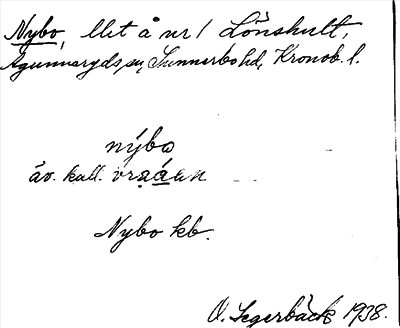 Nybo, llet å nr 1 Lönshult,
Agunnaryds sn, Sunnerbo hd, Kronob. l.
nýbo
äv. kall.
Nybo kb.
O. Segerbäck 1938.